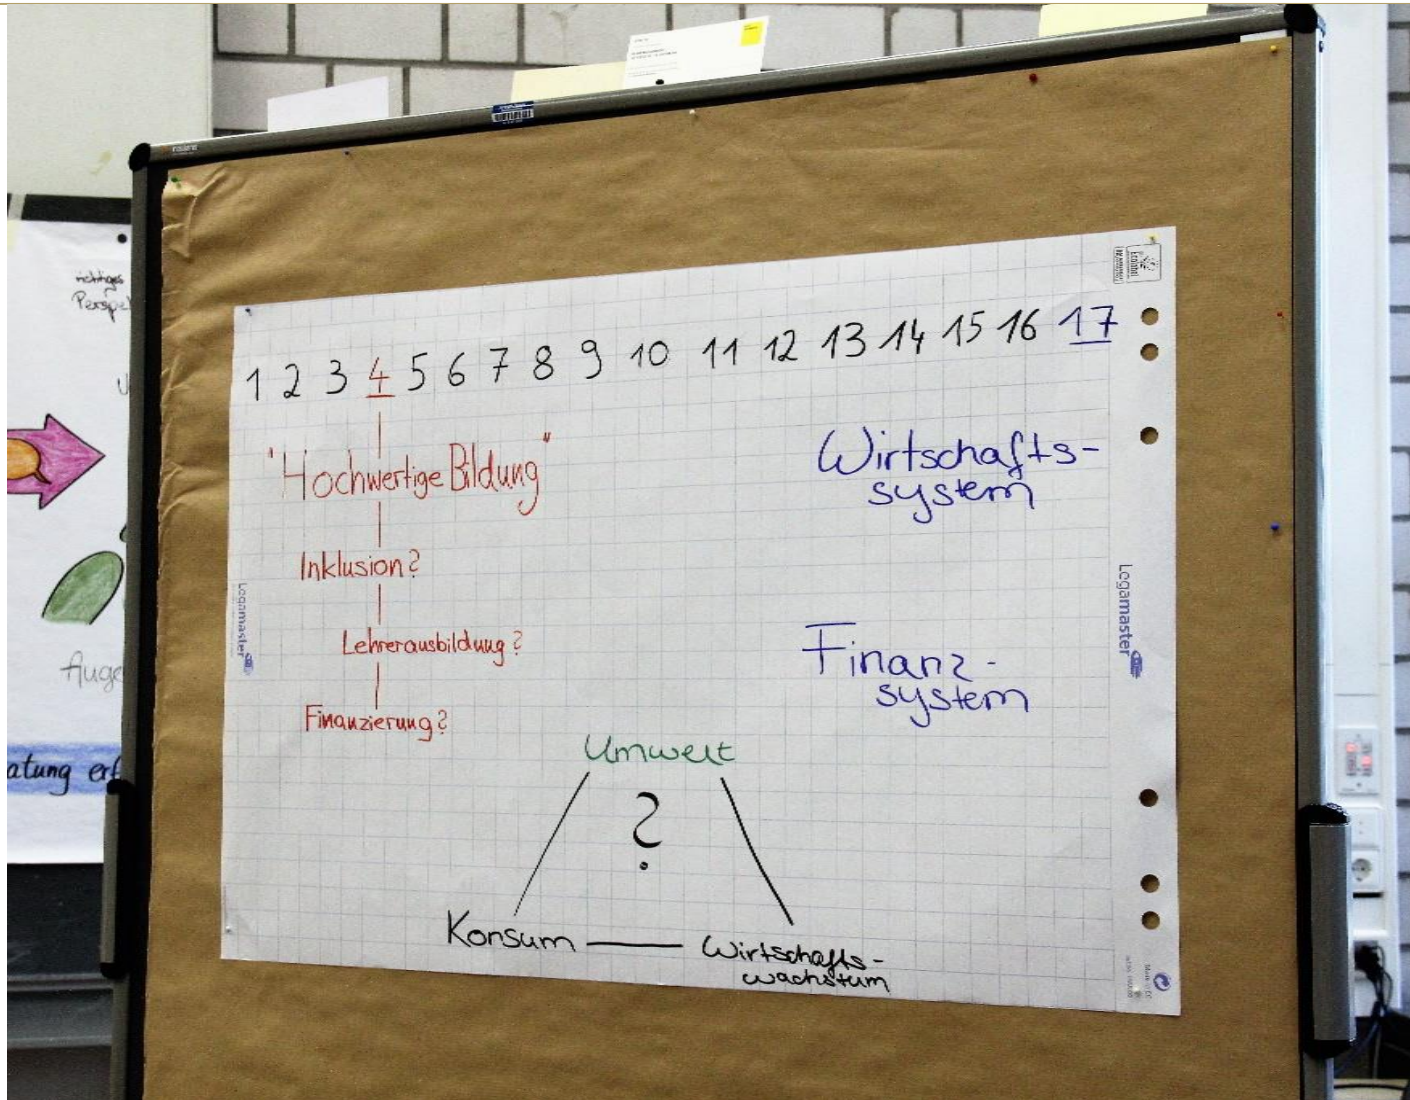 1 2 3 4 5 6 7 8 9 10 11 12 13 14 15 16 17
"Hochwertige Bildung"
Inklusion?
Lehrerausbildung?
Finanzierung?
Wirtschafts-
system
Finanz-
system
Umwelt
?
Konsum
Wirtschafts-
wachstum
Legamaster
Legamaster
richtiges
Perspe
Auge
atung erf